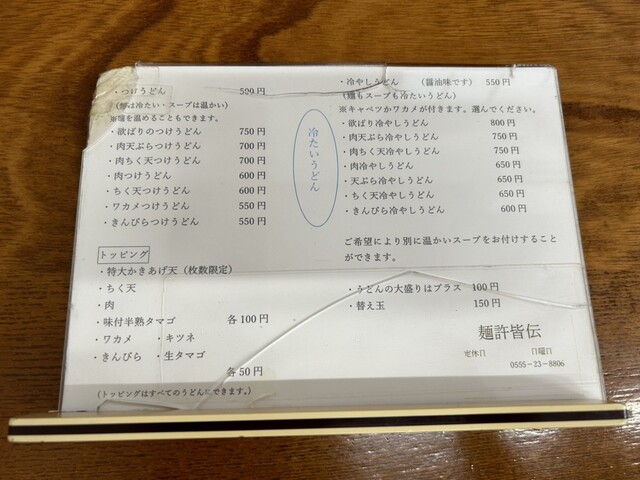 ・つけうどん　500円
(麺は冷たい・スープは温かい)
※麺を温めることもできます。
・欲ばりのつけうどん　750円
・肉天ぷらつけうどん　700円
・肉ちく天つけうどん　700円
・肉つけうどん　600円
・ちく天つけうどん　600円
・ワカメつけうどん　550円
・きんぴらつけうどん　550円
冷たいうどん
・冷やしうどん　(醤油味です)　550円
(麺もスープも冷たいうどん)
※キャベツかワカメが付きます。選んでください。
・欲ばり冷やしうどん　800円
・肉天ぷら冷やしうどん　750円
・肉ちく天冷やしうどん　750円
・肉冷やしうどん　650円
・天ぷら冷やしうどん　650円
・ちく天冷やしうどん　650円
・きんぴら冷やしうどん　600円
ご希望により別に温かいスープをお付けすること
ができます。
トッピング
・特大かきあげ天（枚数限定）
・ちく天
・肉
・味付半熟タマゴ　各100円
・ワカメ　・キツネ
・きんぴら　・生タマゴ
各50円
(トッピングはすべてのうどんにできます。)
・うどんの大盛りはプラス　100円
・替え玉　150円
麺許皆伝
定休日　日曜日
0555－23－8806